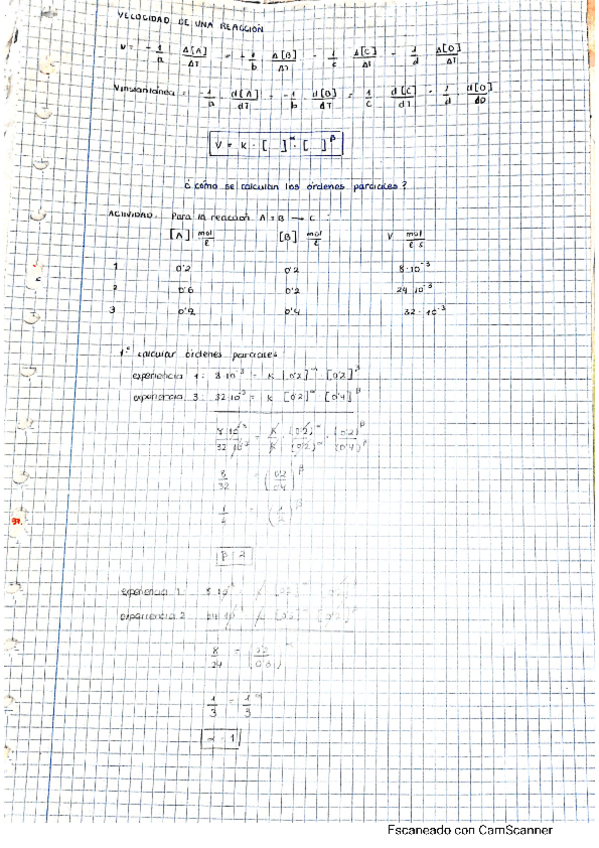 VELOCIDAD DE UNA REACCIÓN
V = - 1/a · Δ[A]/ΔT = - 1/b · Δ[B]/ΔT = 1/c · Δ[C]/Δt = 1/d · Δ[D]/ΔT
Vinstantánea = - 1/a · d[A]/dT = - 1/b · d[B]/dT = 1/c · d[C]/dT = 1/d · d[D]/dD
V = K · [ ]^α · [ ]^β
¿ cómo se calculan los órdenes parciales ?
ACTIVIDAD. Para la reacción A + B → C :
[A] mol/l [B] mol/l V mol/l·s
1 0'2 0'2 8·10^-3
2 0'6 0'2 24·10^-3
3 0'2 0'4 32·10^-3
1º calcular órdenes parciales
experiencia 1: 8·10^-3 = K [0'2]^α [0'2]^β
experiencia 3: 32·10^-3 = K [0'2]^α [0'4]^β
8·10^-3/32·10^-3 = K/K · (0'2)^α/(0'2)^α · (0'2)^β/(0'4)^β
8/32 = (0'2/0'4)^β
1/4 = (1/2)^β
β = 2
experiencia 1
experiencia 2
8/24 = (0'2/0'6)^α
1/3 = 1/3^α
α = 1
97.
Escaneado con CamScanner